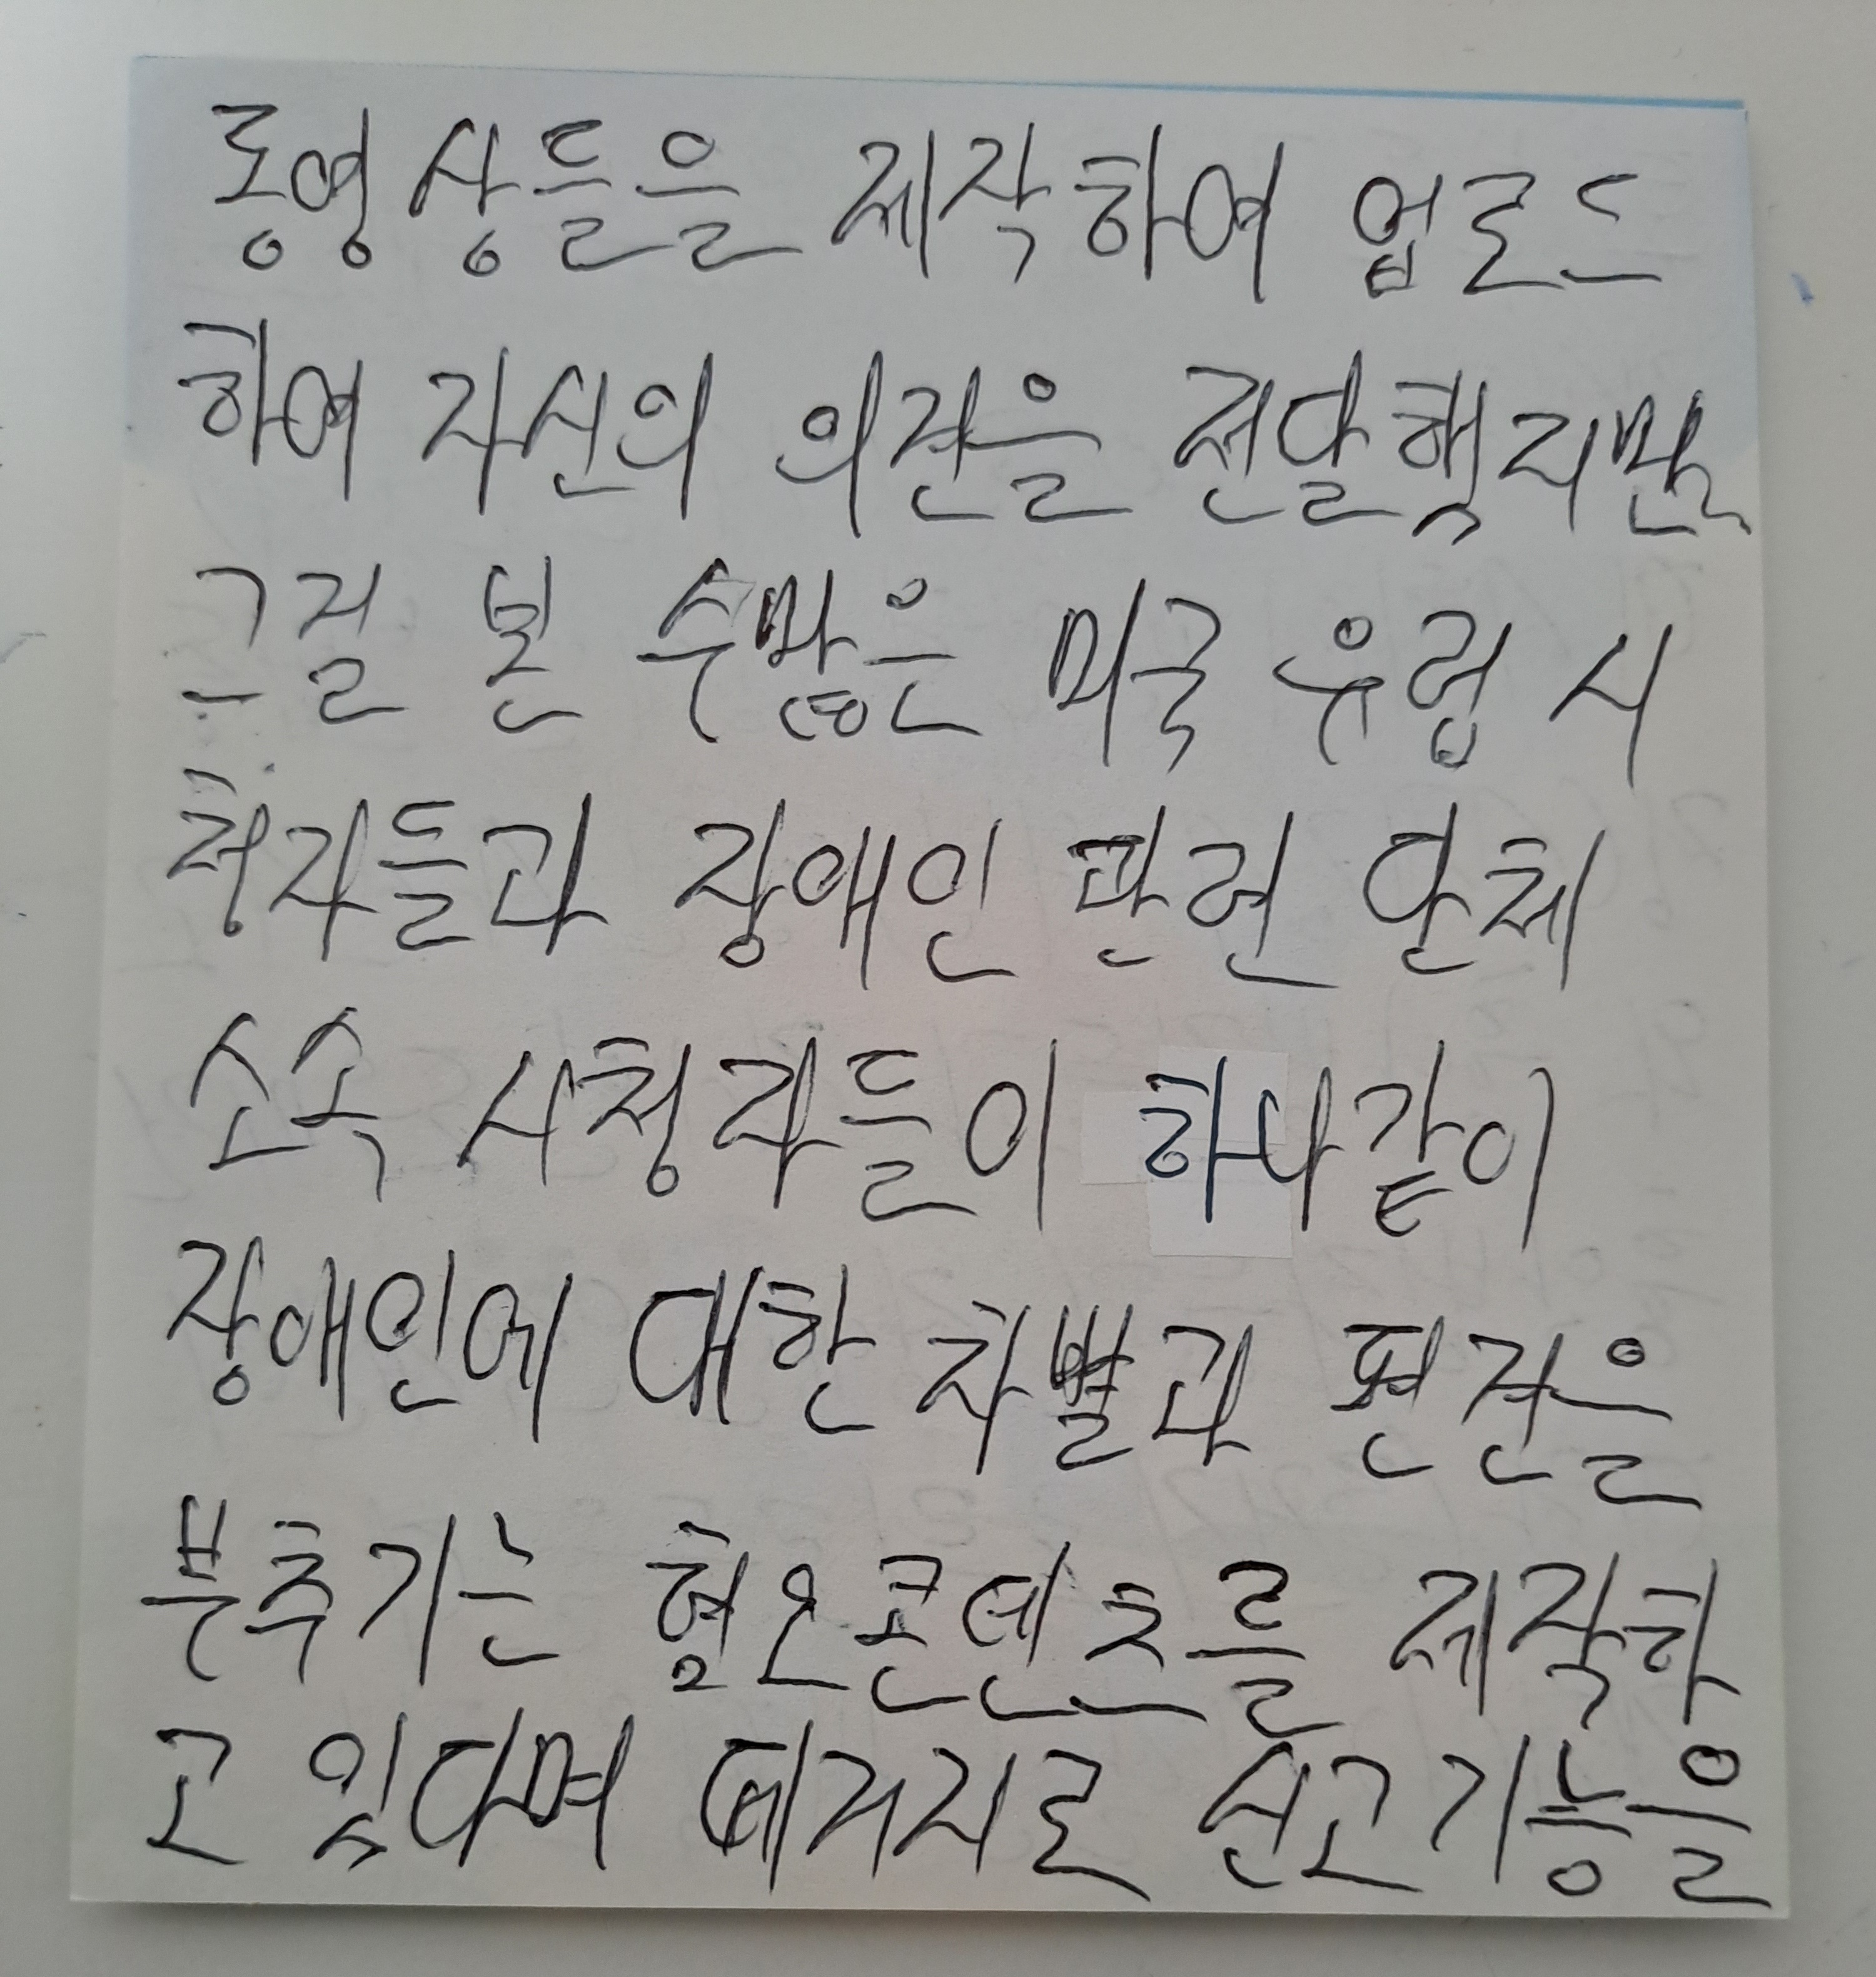 동영상들을 제작하여 업로드
하여 자신의 의견을 전달했지만
그걸 본 수많은 미국 유럽 시
청자들과 장애인 관련 단체
소속 시청자들이 하나같이
장애인에 대한 차별과 편견을
부추기는 혐오콘텐츠를 제작하
고 있다며 떼거지로 신고기능을